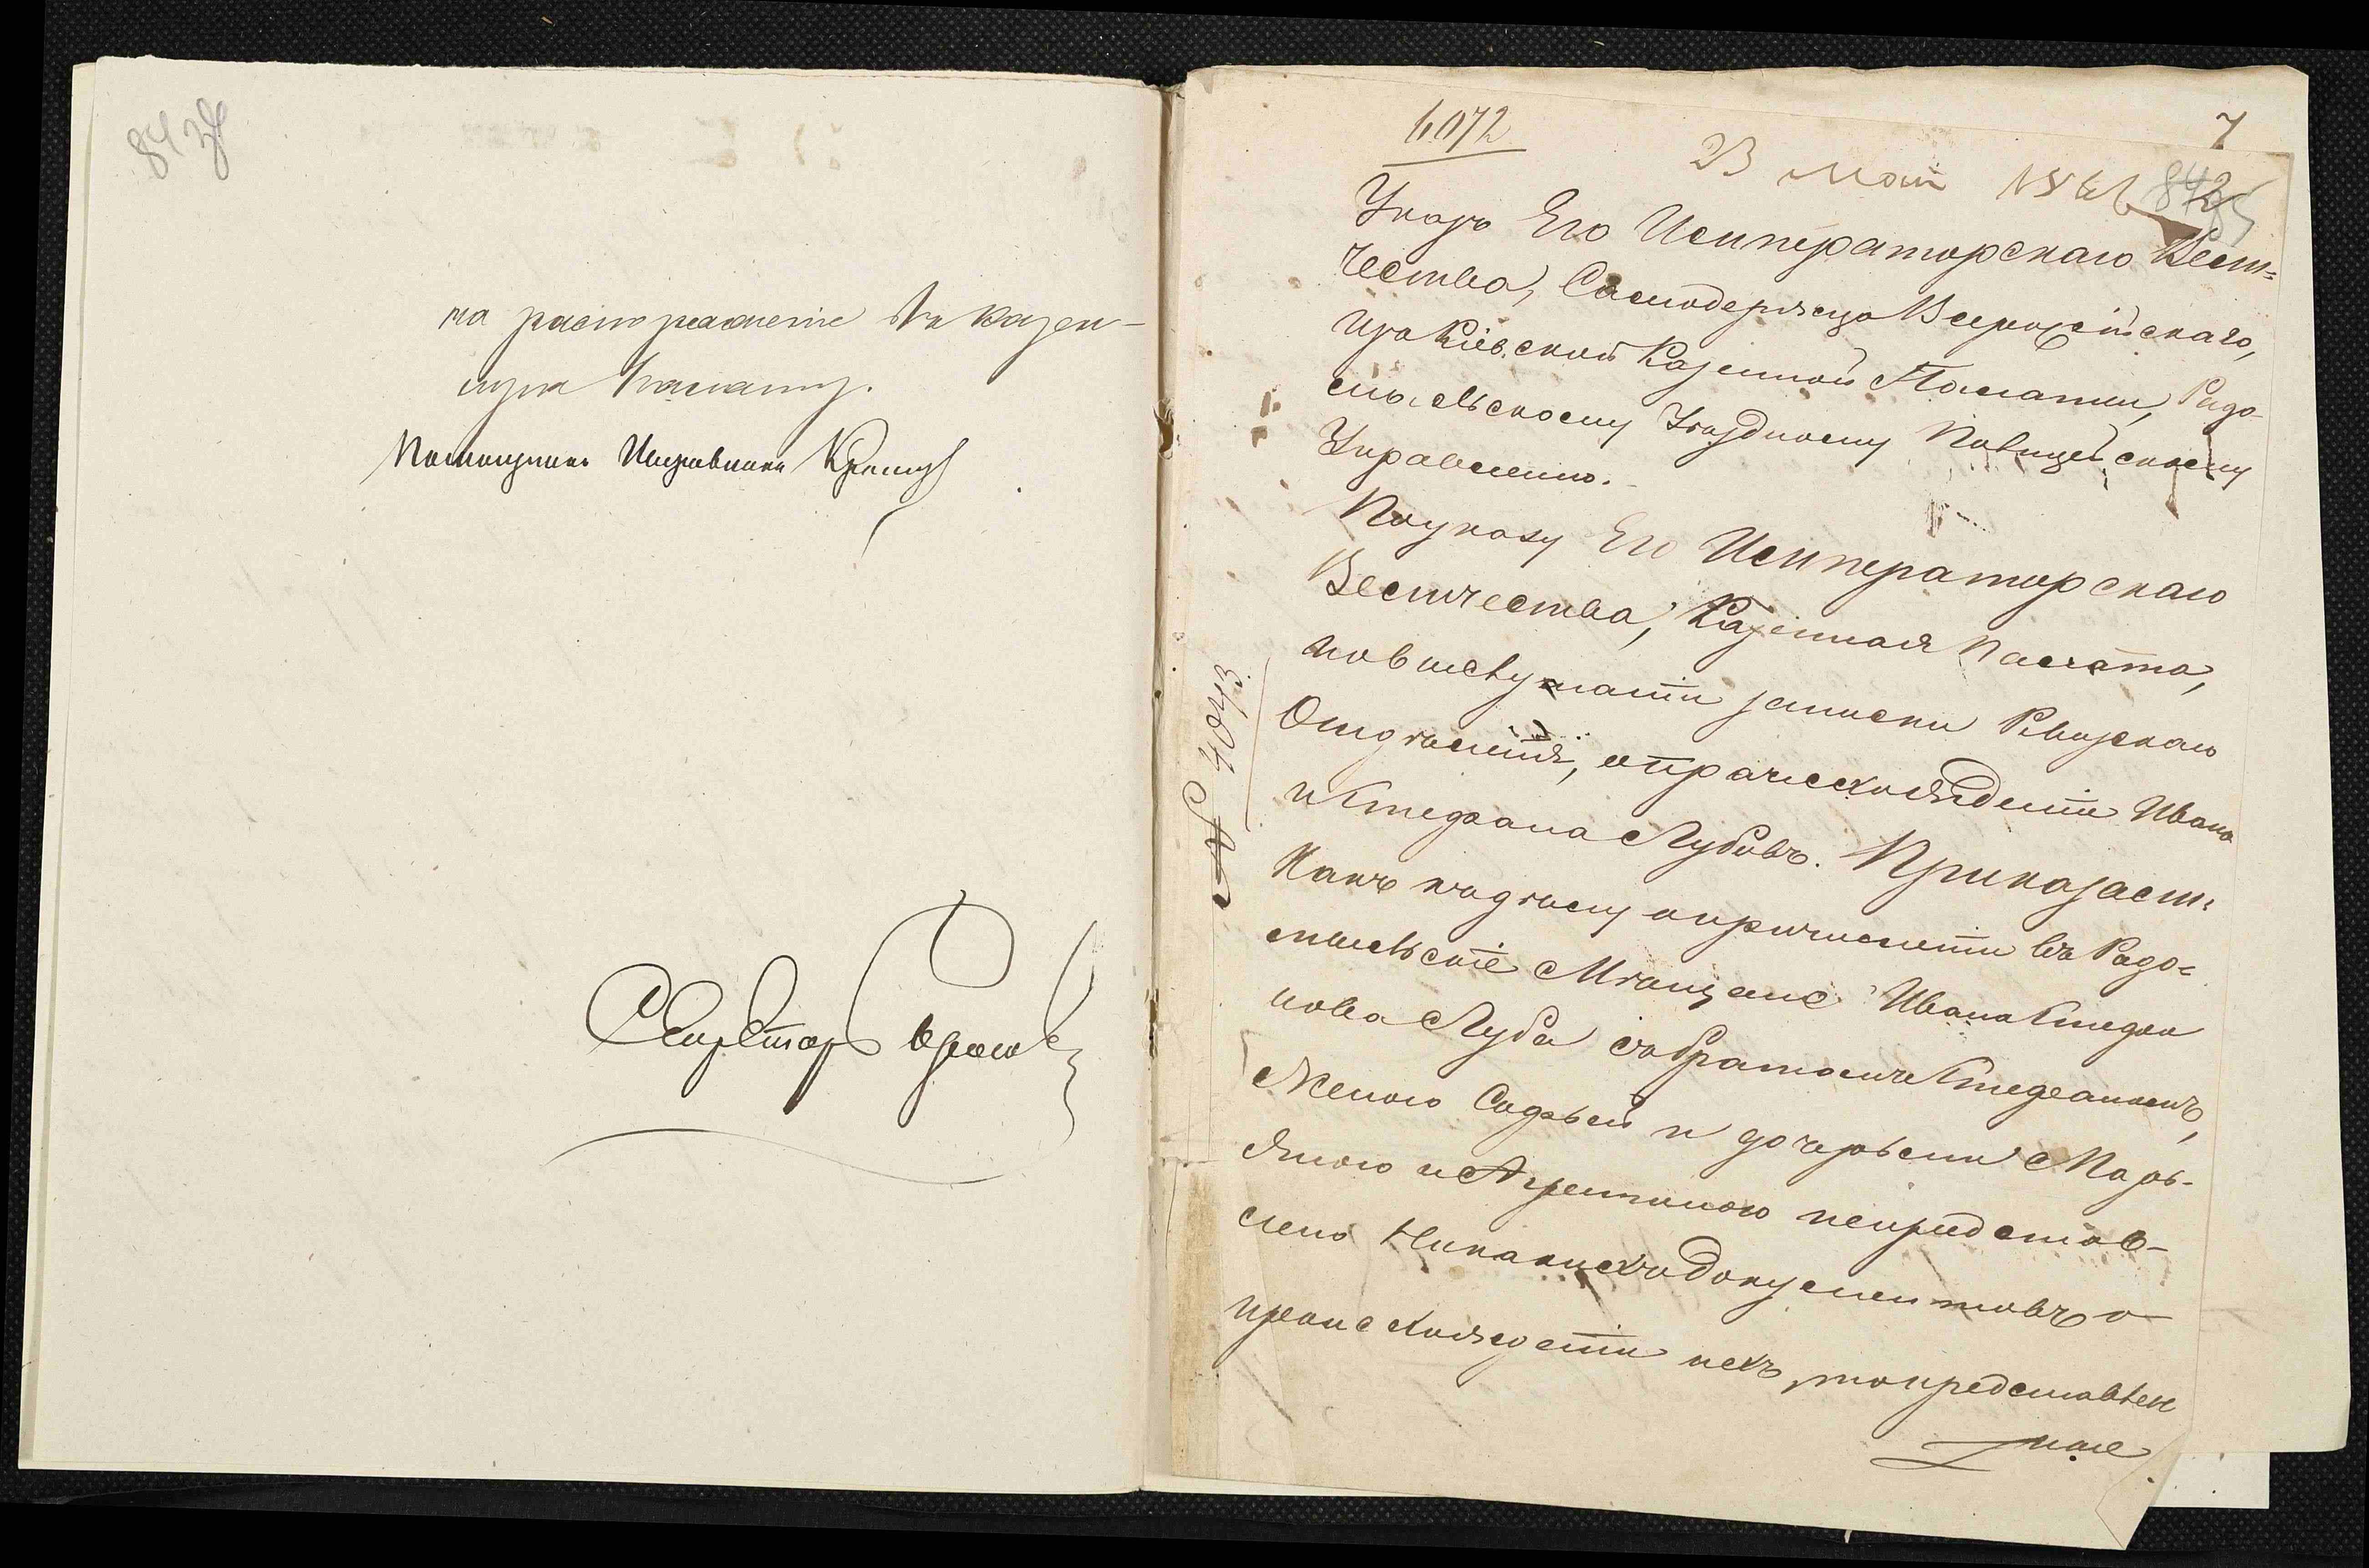 на распоряженіе въ Казен-
ную Палату.
Помощникъ Исправника
Секретарь
6072
7
23 мая
Указъ Его Императорскаго Вели=
чества, Самодержца Всероссійскаго,
изъ Кіевской Казенной Палаты, Радо-
мысльскому Уѣздному Полицейскому
Управленію.
По указу Его Императорскаго
Величества, Казенная Палата,
по выслушаніи записки Ревизскаго
Отдѣленія, о происхожденіи Ивана
и Стефана Лубовъ. Приказали:
Какъ къ дѣлу о причисленіи въ Радо-
мысльскіе Мѣщане Ивана Стефа
нова Луба съ братомъ Стефаномъ,
женою Софьей и дочерьми Марь-
яною и Агрепиною непредстав-
лено никакихъ документовъ о
происхожденіи ихъ, то представлен
ные
№ 4043